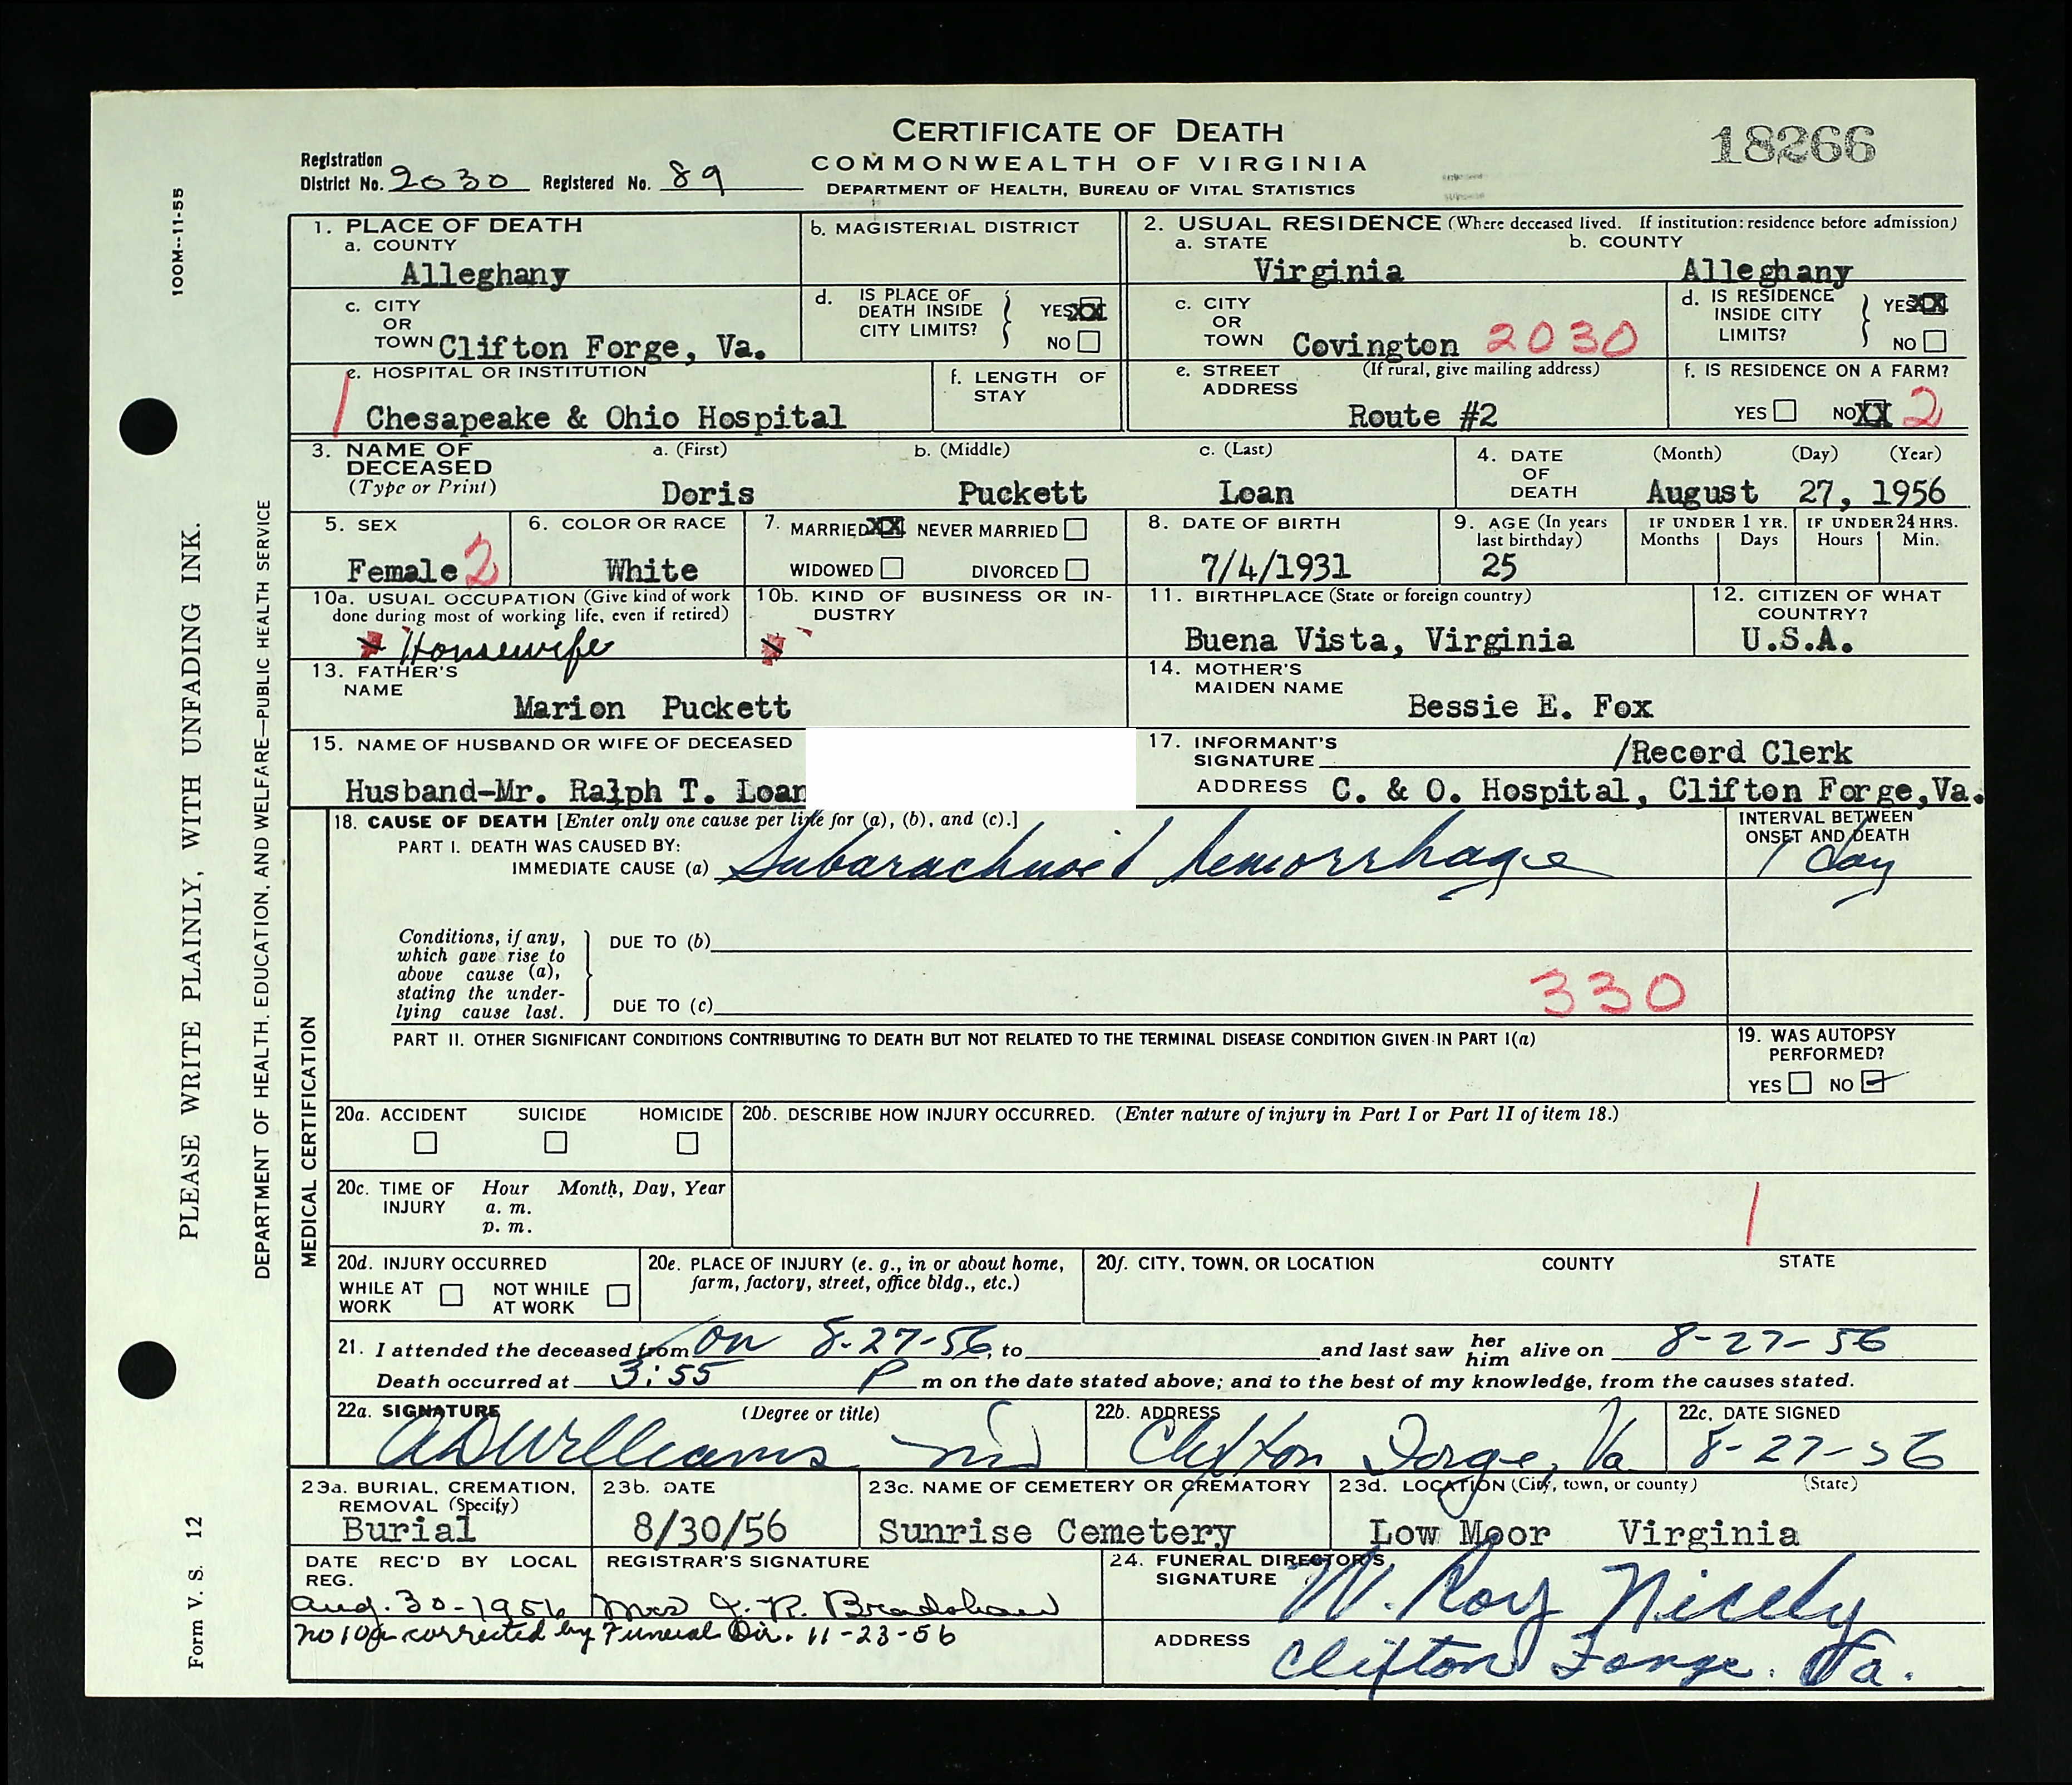 CERTIFICATE OF DEATH
COMMONWEALTH OF VIRGINIA
DEPARTMENT OF HEALTH, BUREAU OF VITAL STATISTICS
18266
Registration
District No. 2030 Registered No. 89
100M--11-55
PLEASE WRITE PLAINLY, WITH UNFADING INK.
DEPARTMENT OF HEALTH, EDUCATION, AND WELFARE—PUBLIC HEALTH SERVICE
Form V. S. 12
1. PLACE OF DEATH
a. COUNTY
Alleghany
b. MAGISTERIAL DISTRICT
2. USUAL RESIDENCE (Where deceased lived. If institution: residence before admission)
a. STATE
Virginia
b. COUNTY
Alleghany
c. CITY
OR
TOWN Clifton Forge, Va.
d. IS PLACE OF
DEATH INSIDE
CITY LIMITS?
YES XX
NO
c. CITY
OR
TOWN Covington 2030
d. IS RESIDENCE
INSIDE CITY
LIMITS?
YES XX
NO
e. HOSPITAL OR INSTITUTION
1 Chesapeake & Ohio Hospital
f. LENGTH OF
STAY
e. STREET
ADDRESS
(If rural, give mailing address)
Route #2
f. IS RESIDENCE ON A FARM?
YES NO XX 2
3. NAME OF
DECEASED
(Type or Print)
a. (First) b. (Middle) c. (Last)
Doris Puckett Loan
4. DATE
OF
DEATH
(Month) (Day) (Year)
August 27, 1956
5. SEX
Female 2
6. COLOR OR RACE
White
7. MARRIED XX NEVER MARRIED
WIDOWED DIVORCED
8. DATE OF BIRTH
7/4/1931
9. AGE (In years
last birthday)
25
IF UNDER 1 YR.
Months Days
IF UNDER 24 HRS.
Hours Min.
10a. USUAL OCCUPATION (Give kind of work
done during most of working life, even if retired)
Housewife
10b. KIND OF BUSINESS OR IN-
DUSTRY
11. BIRTHPLACE (State or foreign country)
Buena Vista, Virginia
12. CITIZEN OF WHAT
COUNTRY?
U.S.A.
13. FATHER'S
NAME
Marion Puckett
14. MOTHER'S
MAIDEN NAME
Bessie E. Fox
15. NAME OF HUSBAND OR WIFE OF DECEASED
Husband-Mr. Ralph T. Loan
17. INFORMANT'S
SIGNATURE /Record Clerk
ADDRESS C. & O. Hospital, Clifton Forge,Va.
MEDICAL CERTIFICATION
18. CAUSE OF DEATH [Enter only one cause per line for (a), (b), and (c).]
PART I. DEATH WAS CAUSED BY:
IMMEDIATE CAUSE (a) Subarachnoid hemorrhage
INTERVAL BETWEEN
ONSET AND DEATH
1 day
Conditions, if any,
which gave rise to
above cause (a),
stating the under-
lying cause last.
DUE TO (b)
DUE TO (c)
330
PART II. OTHER SIGNIFICANT CONDITIONS CONTRIBUTING TO DEATH BUT NOT RELATED TO THE TERMINAL DISEASE CONDITION GIVEN IN PART I(a)
19. WAS AUTOPSY
PERFORMED?
YES NO
20a. ACCIDENT SUICIDE HOMICIDE
20b. DESCRIBE HOW INJURY OCCURRED. (Enter nature of injury in Part I or Part II of item 18.)
20c. TIME OF
INJURY
Hour Month, Day, Year
a. m.
p. m.
1
20d. INJURY OCCURRED
WHILE AT
WORK
NOT WHILE
AT WORK
20e. PLACE OF INJURY (e. g., in or about home,
farm, factory, street, office bldg., etc.)
20f. CITY, TOWN, OR LOCATION COUNTY STATE
21. I attended the deceased from on 8-27-56, to and last saw her him alive on 8-27-56
Death occurred at 3:55 P m on the date stated above; and to the best of my knowledge, from the causes stated.
22a. SIGNATURE (Degree or title)
ADWilliams MD
22b. ADDRESS
Clifton Forge, Va
22c. DATE SIGNED
8-27-56
23a. BURIAL, CREMATION,
REMOVAL (Specify)
Burial
23b. DATE
8/30/56
23c. NAME OF CEMETERY OR CREMATORY
Sunrise Cemetery
23d. LOCATION (City, town, or county) (State)
Low Moor Virginia
DATE REC'D BY LOCAL
REG.
Aug. 30-1956
REGISTRAR'S SIGNATURE
Mrs J. R. Bradshaw
no 10a corrected by Funeral Dir. 11-23-56
24. FUNERAL DIRECTOR'S
SIGNATURE W. Roy Nicely
ADDRESS Clifton Forge. Va.